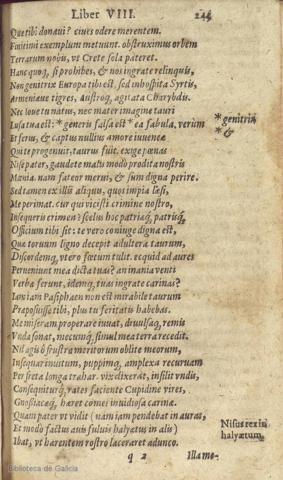 Liber VIII. 244
Que tibi donavi? cives odere merentem.
Finitimi exemplum metuunt. obstruximus orbem
Terrarum nobis, ut Crete sola pateret.
Hanc quoq, si prohibes, & nos ingrate relinquis,
Non genitrix Europa tibi est. sed inhospita Syrtis,
Armeniæve tigres, Austroq, agitata Charybdis.
Nec Iove tu natus, nec mater imagine tauri
Lusa tua est: *generis falsa est* ea fabula. verum
*genitriS
Et ferus, & captus nullius amore iuvencæ
*&
Qui te progenuit, taurus fuit. exige pœnas
Nise pater, gaudete malis modo prodita nostris
Mœnia. nam fateor merui, & sum digna perire.
Sed tamen ex illis aliquis, quos impia læsi,
Me perimat. cur qui vicisti crimine nostro,
Insequeris crimen? scelus hoc patriæq, patriq,
Officium tibi sit. te vero coniuge digna est,
Quæ torvum ligno decepit adultera taurum,
Discordemq, utero fœtum tulit. ecquid ad aures
Perveniunt mea dicta tuas? an inania venti
Verba ferunt, idemq, tuas ingrate carinas?
Iam iam Pasiphaen non est mirabile taurum
Præposuisse tibi, plus tu feritatis habebas.
Me miseram properare iuvat, divulsaq, remis
Unda sonat, mecumq, simul mea terra recedit.
Nil agis ô frustra meritorum oblite meorum,
Insequar invitum, puppimq, amplexa recurvam
Per freta longa trahar. vix dixerat, insilit undis,
Consequiturq, rates faciente Cupidine vires,
Gnosiacæq, hæret comes invidiosa carinæ.
Quam pater ut vidit (nam iam pendebat in auras,
Nisus rex in
Et modo factus avis fulvis halyætus in alis)
halyætum.
Ibat, ut hærentem rostro laceraret adunco.
q 2 Illa me-
Biblioteca de Galicia